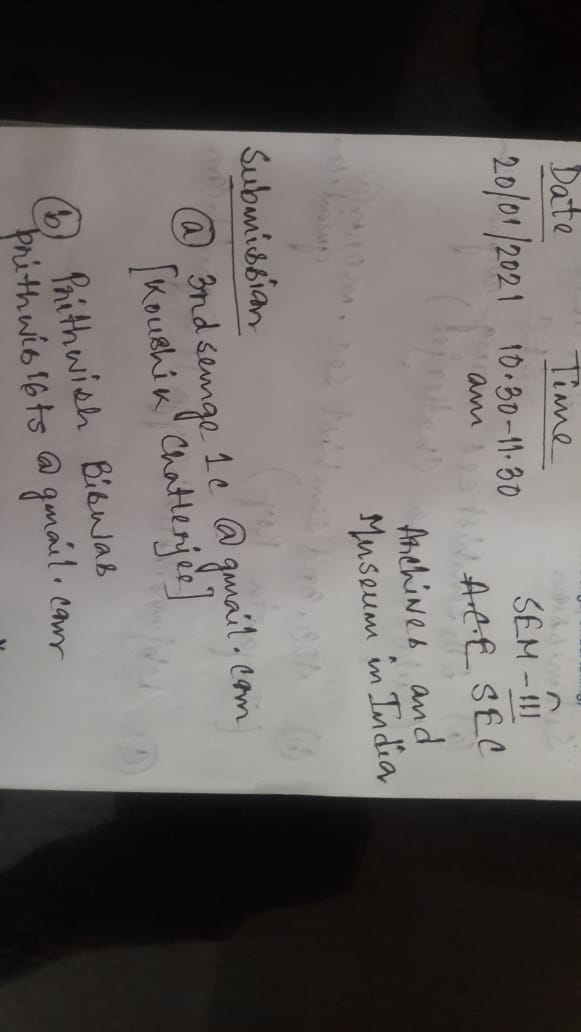 Date Time SEM-III
20/01/2021 10.30-11.30 A.C.E SEC
am
Archives and
Museum in India
Submission
(a) 3nd semge 1c @gmail.com
[Koushik Chatterjee]
(b) Prithwish Biswas
prithwis16ts@gmail.com